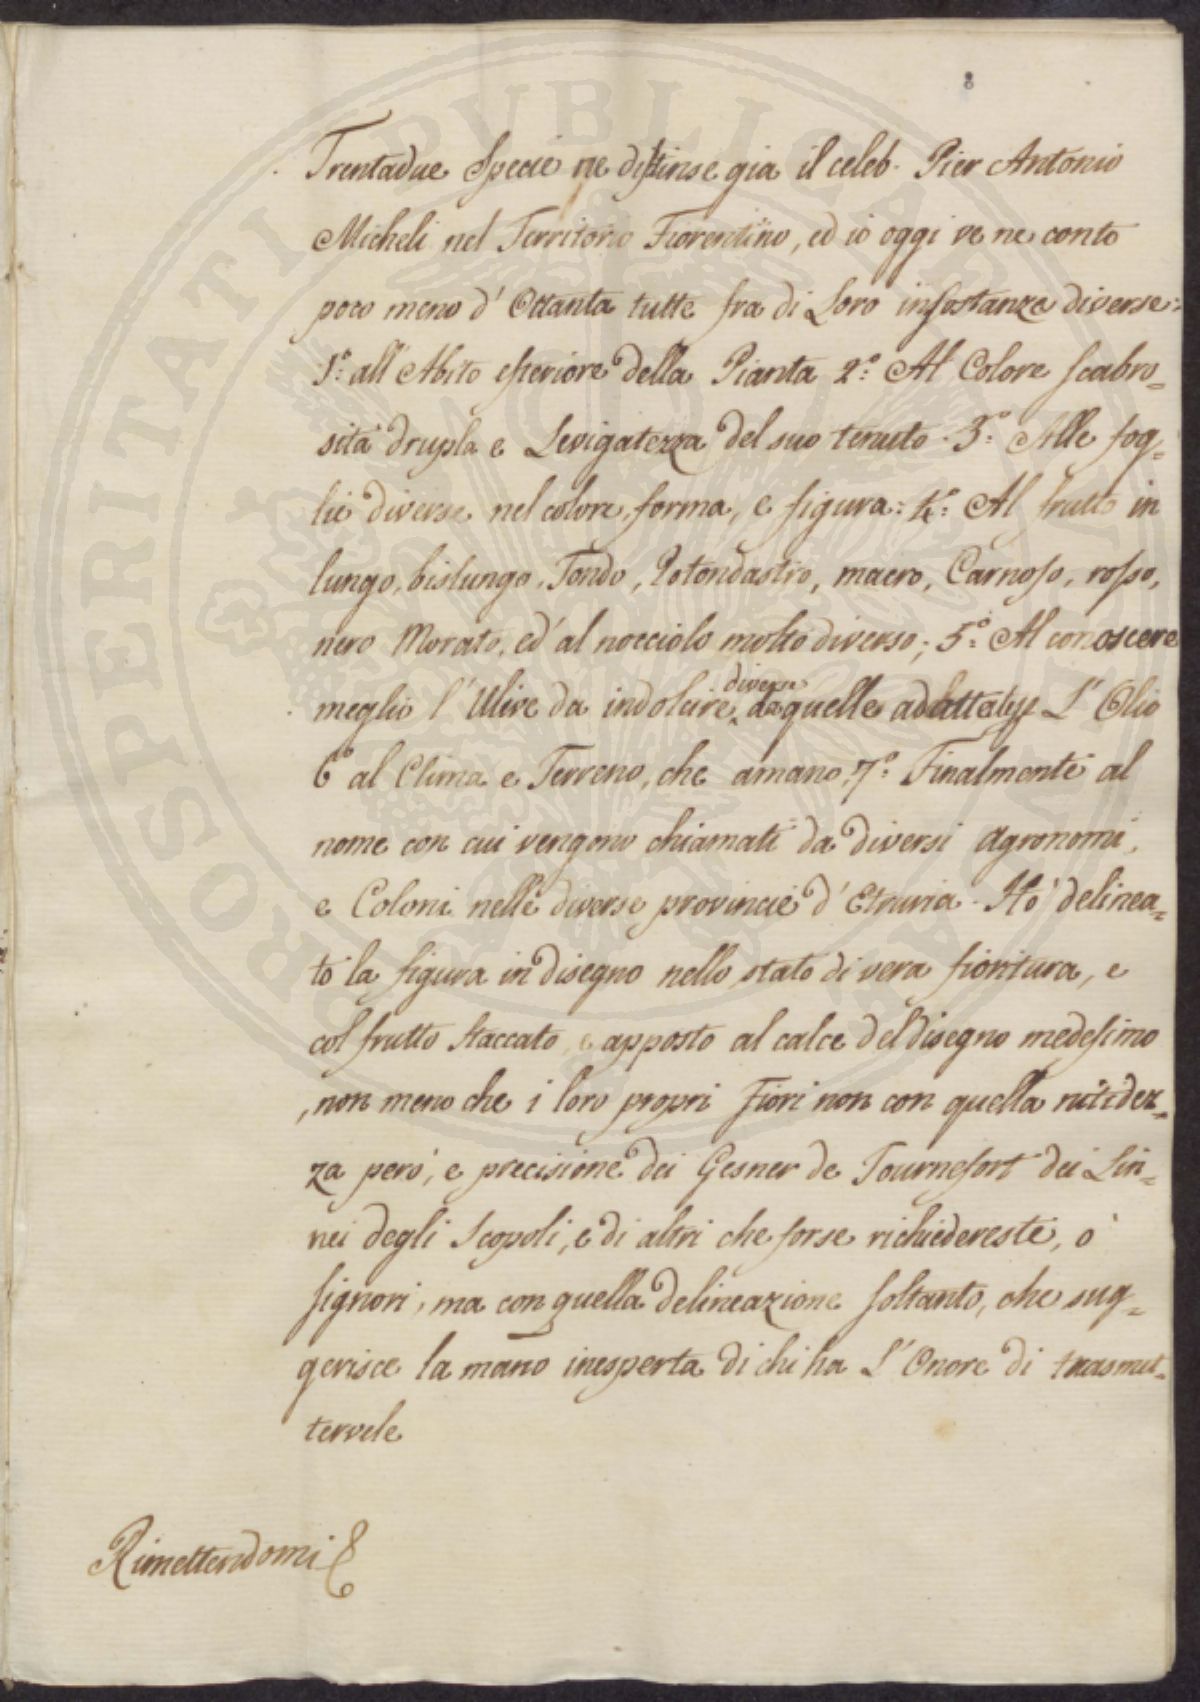 8
Trentadue Specie ne distinse gia il celeb. Pier Antonio
Micheli nel Territorio Fiorentino, ed io oggi ve ne conto
poco meno d' Ottanta tutte fra di Loro in sostanza diverse:
1°: all' Abito esteriore della Pianta 2°: Al Colore scabro=
sità e Levigatezza del suo 3°: Alle fog=
lie diverse nel colore, forma, e figura: 4°: Al frutto in
lungo, bislungo, Tondo, Rotondastro, macro, Carnoso, rosso,
nero Morato, ed' al nocciolo molto diverso; 5°: Al conoscere
diverse
meglio l' Ulive da indolcire da quelle L' Olio
6° al Clima e Terreno, che amano, 7°: Finalmente al
nome con cui vengono chiamati da diversi Agronomi,
e Coloni nelle diverse provincie d' Etruria. Hò delinea=
to la figura in disegno nello stato di vera fioritura, e
col frutto staccato, e apposto al calce del disegno medesimo
, non meno che i loro propri Fiori non con quella nitidez=
za però, e precisione dei Gesner de Tournefort dei Lin=
nei degli Scopoli, e di altri che forse richiedereste, ò
signori, ma con quella delineazione soltanto, che sug=
gerisce la mano inesperta di chi ha L' Onore di trasmet=
tervele
Rimettendomi
PROSPERITATI PUBLICAE